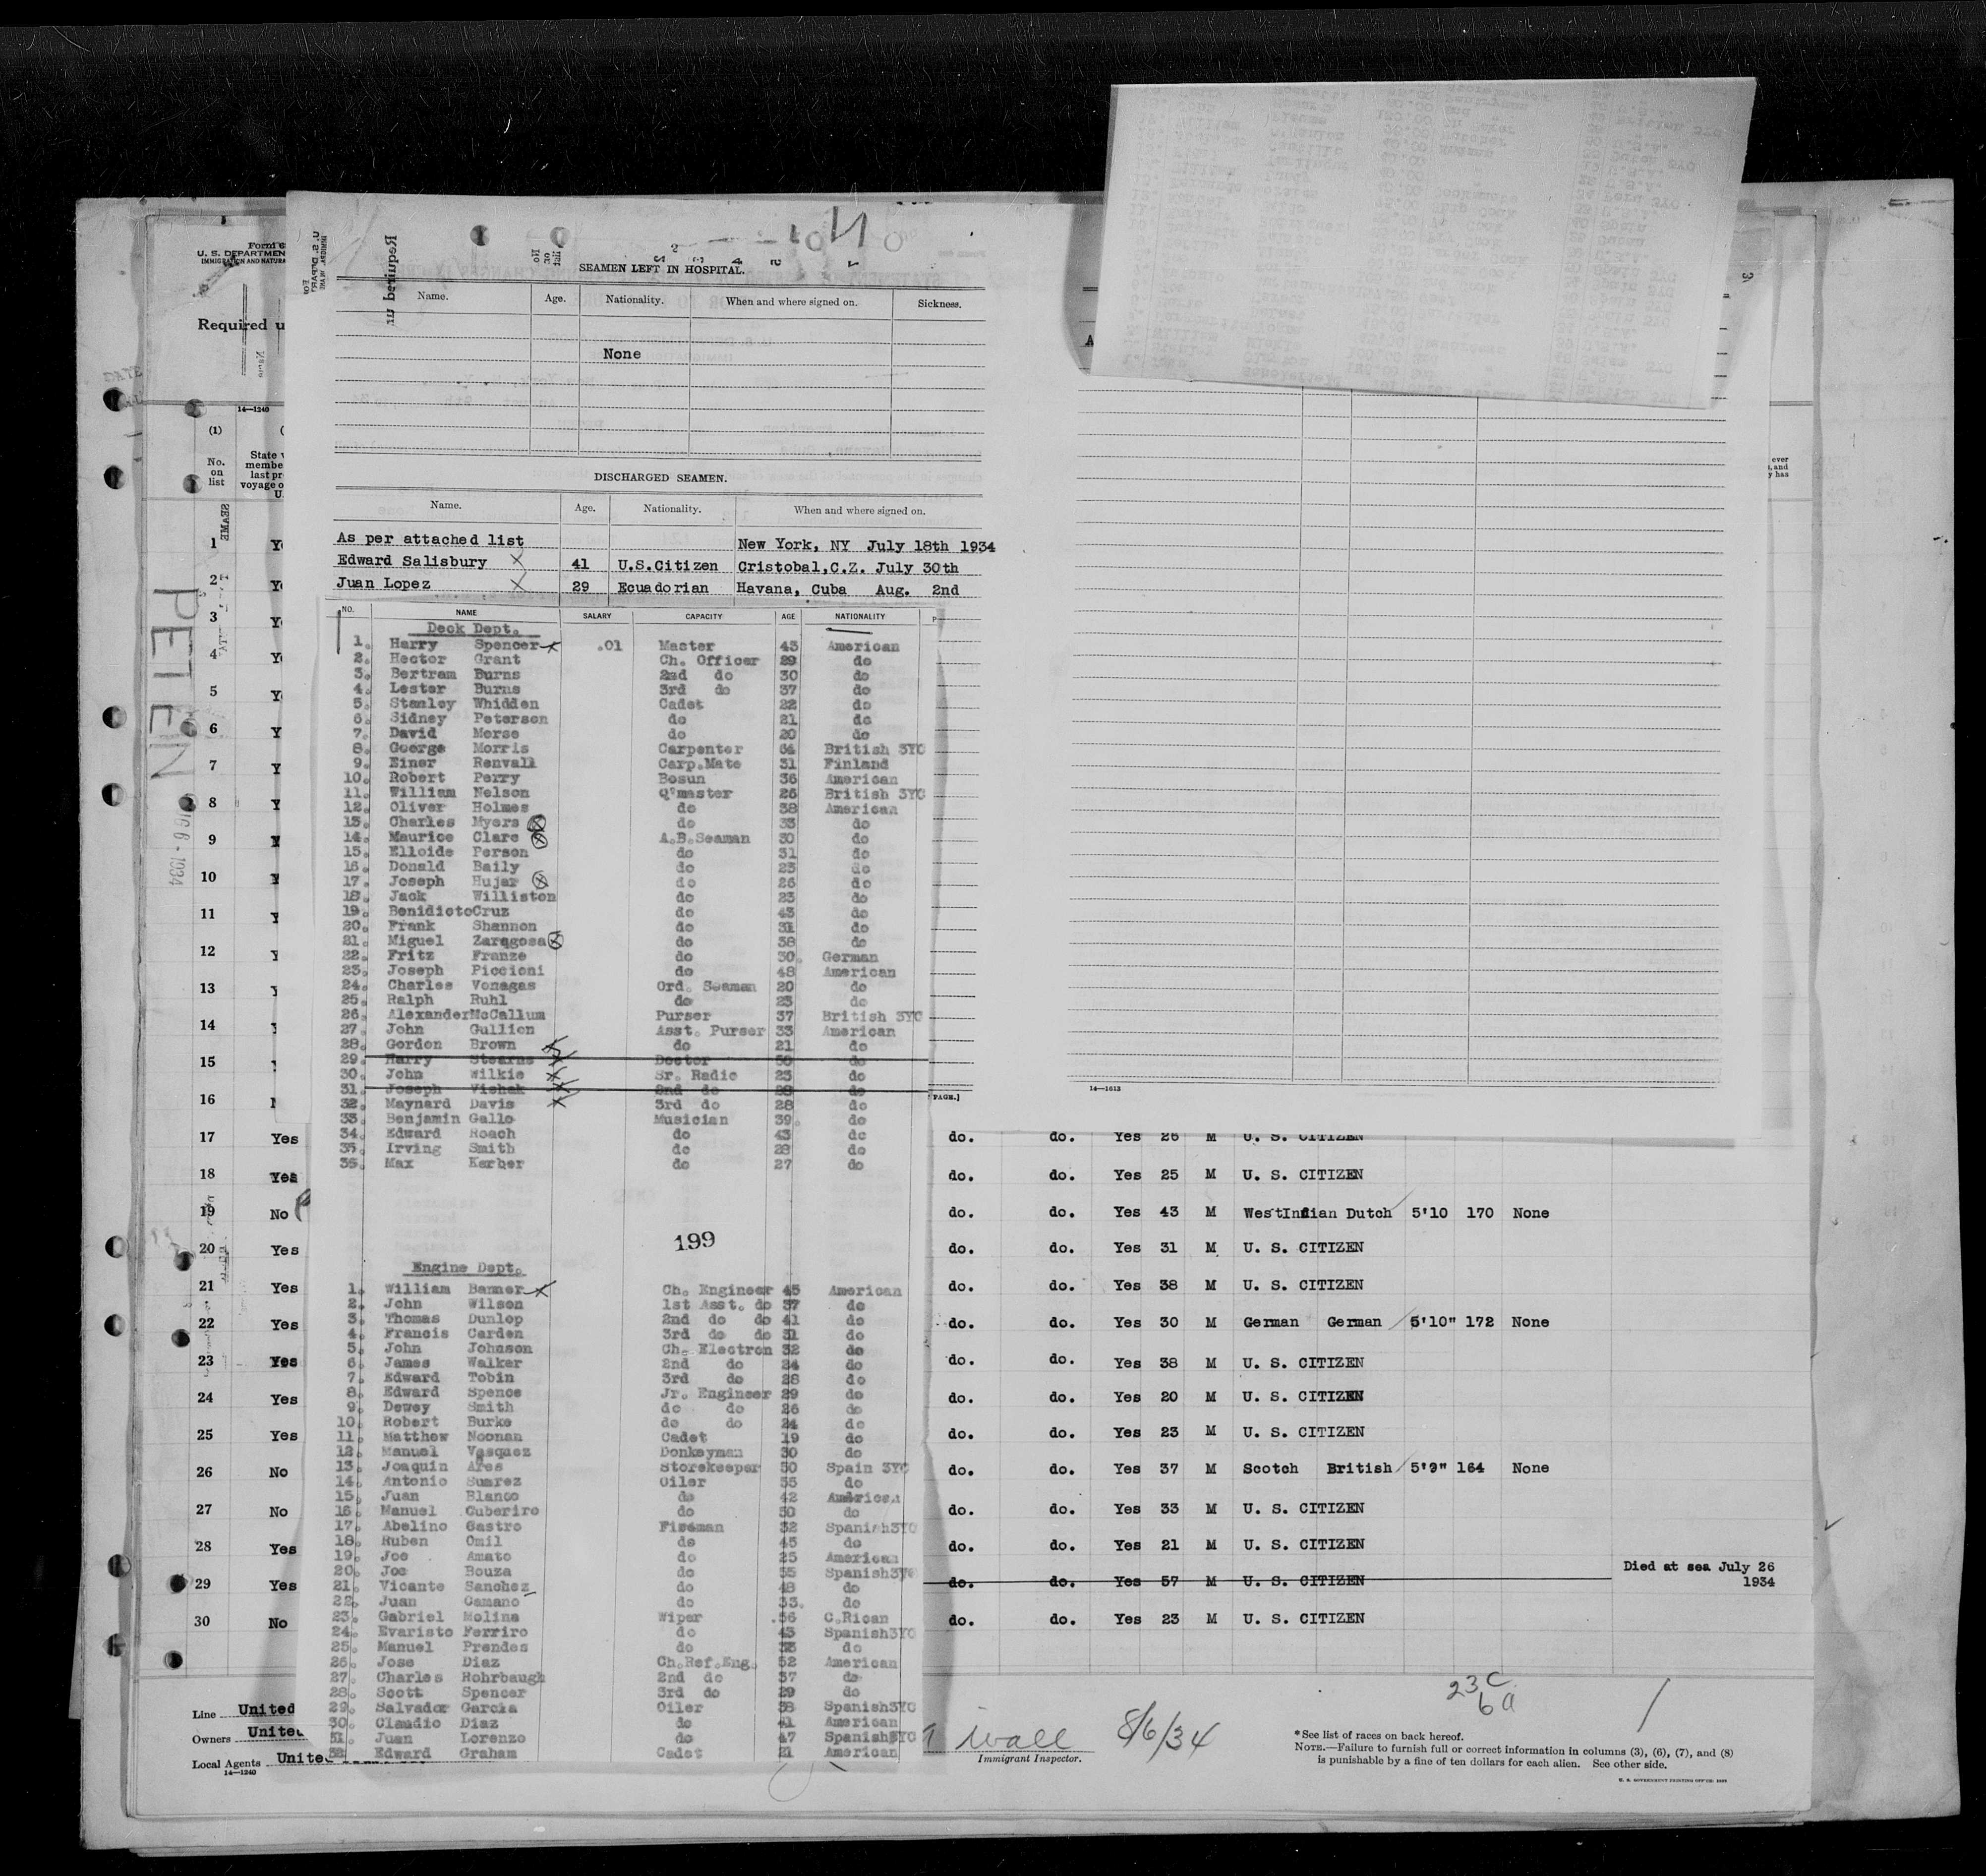 SEAMEN LEFT IN HOSPITAL.
Name. Age. Nationality. When and where signed on. Sickness.
None
DISCHARGED SEAMEN.
Name. Age. Nationality. When and where signed on.
As per attached list New York, NY July 18th 1934
Edward Salisbury 41 U.S.Citizen Cristobal,C.Z. July 30th
Juan Lopez 29 Ecuadorian Havana, Cuba Aug. 2nd
NO. NAME SALARY CAPACITY AGE NATIONALITY
Deck Dept.
1. Harry Spencer .01 Master 43 American
2. Hector Grant Ch. Officer 29 do
3. Bertram Burns 2nd do 30 do
4. Lester Burns 3rd do 37 do
5. Stanley Whidden Cadet 22 do
6. Sidney Peterson do 21 do
7. David Morse do 20 do
8. George Morris Carpenter 64 British 3YC
9. Einer Renvall Carp.Mate 31 Finland
10. Robert Perry Bosun 36 American
11. William Nelson Q'master 26 British 3YC
12. Oliver Holmes do 38 American
13. Charles Myers do 33 do
14. Maurice Clare A.B.Seaman 30 do
15. Elloide Person do 31 do
16. Donald Baily do 23 do
17. Joseph Hujar do 26 do
18. Jack Williston do 23 do
19. BenidictoCruz do 43 do
20. Frank Shannon do 31 do
21. Miguel Zaragosa do 38 do
22. Fritz Franze do 30. German
23. Joseph Piccioni do 48 American
24. Charles Vonagas Ord. Seaman 20 do
25. Ralph Ruhl do 23 do
26. AlexanderMcCallum Purser 37 British 3YC
27. John Gullion Asst. Purser 33 American
28. Gordon Brown do 21 do
29. Harry Stearns Doctor do
30. John Wilkie Sr. Radio 23 do
31. Joseph Vishak 2nd do 28 do
32. Maynard Davis 3rd do 28 do
33. Benjamin Gallo Musician 39. do
34. Edward Roach do 43 do
35. Irving Smith do 28 do
36. Max Kerber do 27 do
199
Engine Dept.
1. William Banner Ch. Engineer 45 American
2. John Wilson 1st Asst. do 37 do
3. Thomas Dunlop 2nd do do 41 do
4. Francis Carden 3rd do do 31 do
5. John Johnson Ch. Electron 32 do
6. James Walker 2nd do 24 do
7. Edward Tobin 3rd do 28 do
8. Edward Spence Jr. Engineer 29 do
9. Dewey Smith do do 26 do
10. Robert Burke do do 24 do
11. Matthew Noonan Cadet 19 do
12. Manuel Vasquez Donkeyman 30 do
13. Joaquin Ares Storekeeper 50 Spain 3YC
14. Antonio Suarez Oiler 35 do
15. Juan Blanco do 42 American
16. Manuel Cuberiro do 50 do
17. Abelino Castro Fireman 32 Spanish3YC
18. Ruben Omil do 45 do
19. Joe Amato do 25 American
20. Joe Bouza do 35 Spanish3YC
21. Vicante Sanchez do 48 do
22. Juan Camano do 33. do
23. Gabriel Molina Wiper .56 C.Rican
24. Evaristo Ferriro do 43 Spanish3YC
25. Manuel Prendes do do
26. Jose Diaz Ch.Ref.Eng. 52 American
27. Charles Rohrbaugh 2nd do 37 do
28. Scott Spencer 3rd do 29 do
29. Salvador Garcia Oiler 38 Spanish3YC
30. Claudio Diaz do 41 American
31. Juan Lorenzo do 47 Spanish3YC
32. Edward Graham Cadet 21 American
U. S. DEPARTMEN
IMMIGRATION AND NATURA
Required u
14—1240
(1)
No. on list
State w
membe
last pr
voyage o
U.
PETEN
AUG 6 - 1934
1
2
3
4
5
6
7
8
9
10
11
12
13
14
15
16
14—1613
PAGE.]
17 Yes do. do. Yes 26 M U. S. CITIZEN
18 Yes do. do. Yes 25 M U. S. CITIZEN
19 No do. do. Yes 43 M WestIndian Dutch 5'10 170 None
20 Yes do. do. Yes 31 M U. S. CITIZEN
21 Yes do. do. Yes 38 M U. S. CITIZEN
22 Yes do. do. Yes 30 M German German 5'10" 172 None
23 Yes do. do. Yes 38 M U. S. CITIZEN
24 Yes do. do. Yes 20 M U. S. CITIZEN
25 Yes do. do. Yes 23 M U. S. CITIZEN
26 No do. do. Yes 37 M Scotch British 5'9" 164 None
27 No do. do. Yes 33 M U. S. CITIZEN
28 Yes do. do. Yes 21 M U. S. CITIZEN
29 Yes do. do. Yes 57 M U. S. CITIZEN Died at sea July 26 1934
30 No do. do. Yes 23 M U. S. CITIZEN
23 C
6 a
Line United
Owners United
Local Agents United
14—1240
Wall 8/6/34
Immigrant Inspector.
*See list of races on back hereof.
NOTE.—Failure to furnish full or correct information in columns (3), (6), (7), and (8)
is punishable by a fine of ten dollars for each alien. See other side.
U. S. GOVERNMENT PRINTING OFFICE